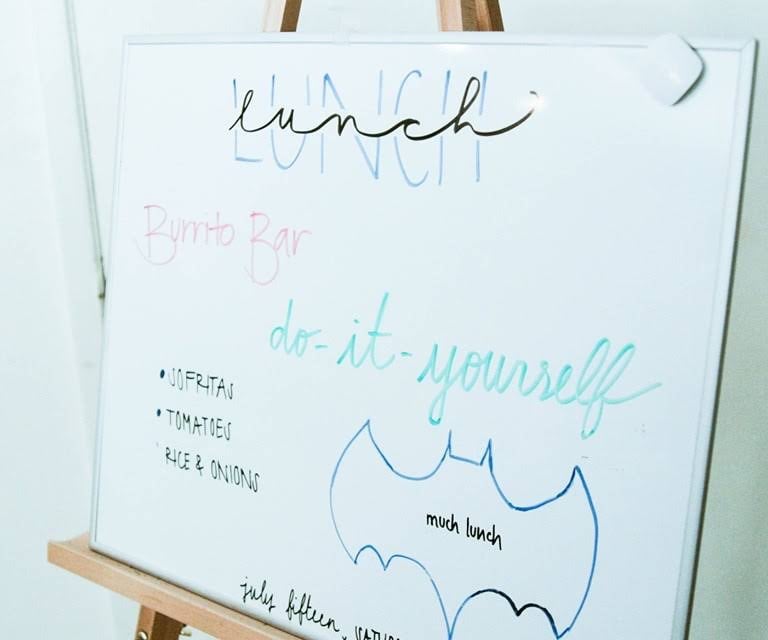 LUNCH
lunch
Burrito Bar
do-it-yourself
• SOFRITAS
• TOMATOES
RICE & ONIONS
much lunch
july fifteen,